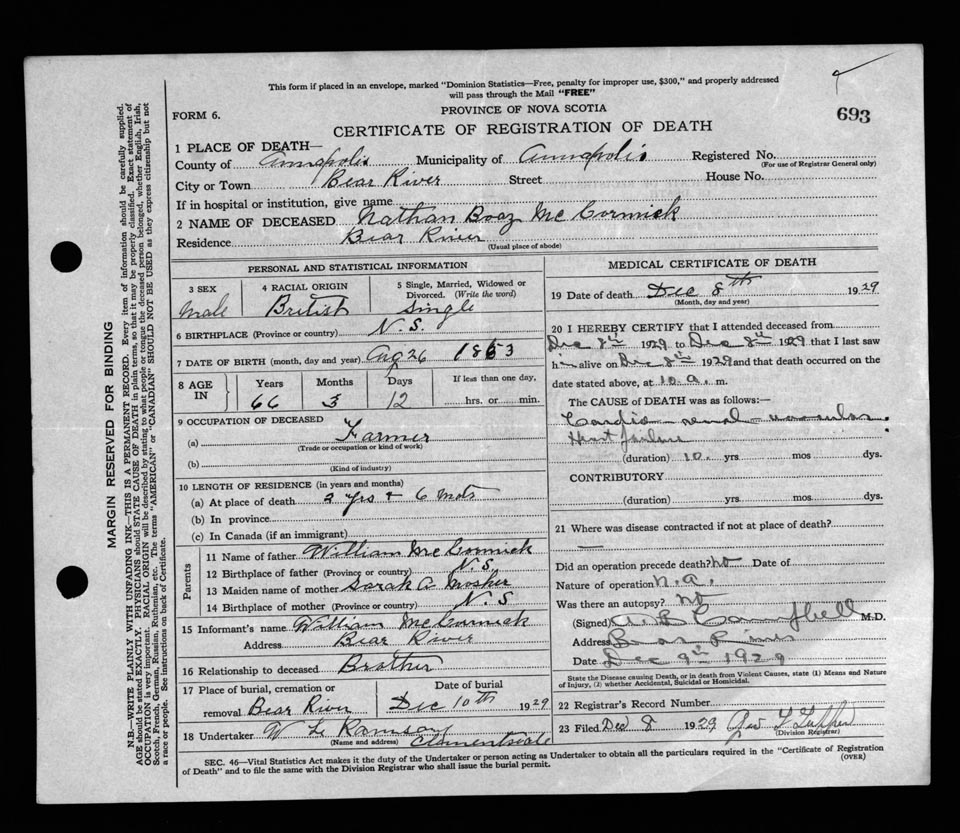 This form if placed in an envelope, marked "Dominion Statistics—Free, penalty for improper use, $300," and properly addressed
will pass through the Mail "FREE"
PROVINCE OF NOVA SCOTIA
693
FORM 6.
CERTIFICATE OF REGISTRATION OF DEATH
1 PLACE OF DEATH—
County of Annapolis Municipality of Annapolis Registered No.
(For use of Registrar General only)
City or Town Bear River Street House No.
If in hospital or institution, give name
2 NAME OF DECEASED Nathan Boaz McCormick
Residence Bear River
(Usual place of abode)
PERSONAL AND STATISTICAL INFORMATION
3 SEX 4 RACIAL ORIGIN 5 Single, Married, Widowed or
Divorced. (Write the word)
Male British Single
6 BIRTHPLACE (Province or country) N.S.
7 DATE OF BIRTH (month, day and year) Aug 26 1863
8 AGE IN Years Months Days If less than one day,
66 3 12 hrs. or min.
9 OCCUPATION OF DECEASED
(a) Farmer
(Trade or occupation or kind of work)
(b)
(Kind of industry)
10 LENGTH OF RESIDENCE (in years and months)
(a) At place of death 2 yrs + 6 mots
(b) In province
(c) In Canada (if an immigrant)
Parents
11 Name of father William McCormick
12 Birthplace of father (Province or country) N.S.
13 Maiden name of mother Sarah A Mosher
14 Birthplace of mother (Province or country) N.S
15 Informant's name William McCormick
Address Bear River
16 Relationship to deceased Brother
17 Place of burial, cremation or Date of burial
removal Bear River Dec 10th 1929
18 Undertaker W L Ramsay
(Name and address) Clementsvale
MEDICAL CERTIFICATE OF DEATH
19 Date of death Dec 8th 1929
(Month, day and year)
20 I HEREBY CERTIFY that I attended deceased from
Dec 8th 1929 to Dec 8th 1929 that I last saw
h alive on Dec 8th 1929 and that death occurred on the
date stated above, at 10 a. m.
The CAUSE OF DEATH was as follows:—
Cardio renal vascular.
Heart failure
(duration) 10 yrs mos dys.
CONTRIBUTORY
(duration) yrs. mos. dys.
21 Where was disease contracted if not at place of death?
Did an operation precede death? No Date of
Nature of operation n.a.
Was there an autopsy? No
(Signed) Campbell M.D.
Address Bear River
Date Dec 9th 1929
State the Disease causing Death, or in death from Violent Causes, state (1) Means and Nature
of Injury, (2) whether Accidental, Suicidal or Homicidal.
22 Registrar's Record Number
23 Filed Dec 8 1929
(Division Registrar)
SEC. 46—Vital Statistics Act makes it the duty of the Undertaker or person acting as Undertaker to obtain all the particulars required in the "Certificate of Registration
of Death" and to file the same with the Division Registrar who shall issue the burial permit. (OVER)
MARGIN RESERVED FOR BINDING
N.B.—WRITE PLAINLY WITH UNFADING INK—THIS IS A PERMANENT RECORD. Every item of information should be carefully supplied.
AGE should be stated EXACTLY. PHYSICIANS should STATE CAUSE OF DEATH in plain terms, so that it may be properly classified. Exact statement of
OCCUPATION is very important. RACIAL ORIGIN will be described by stating to what people or tongue the deceased person belonged, whether English, Irish,
Scotch, French, German, Russian, Ruthenian, etc. The terms "AMERICAN" or "CANADIAN" SHOULD NOT BE USED as they express citizenship but not
a race or people. See instructions on back of Certificate.